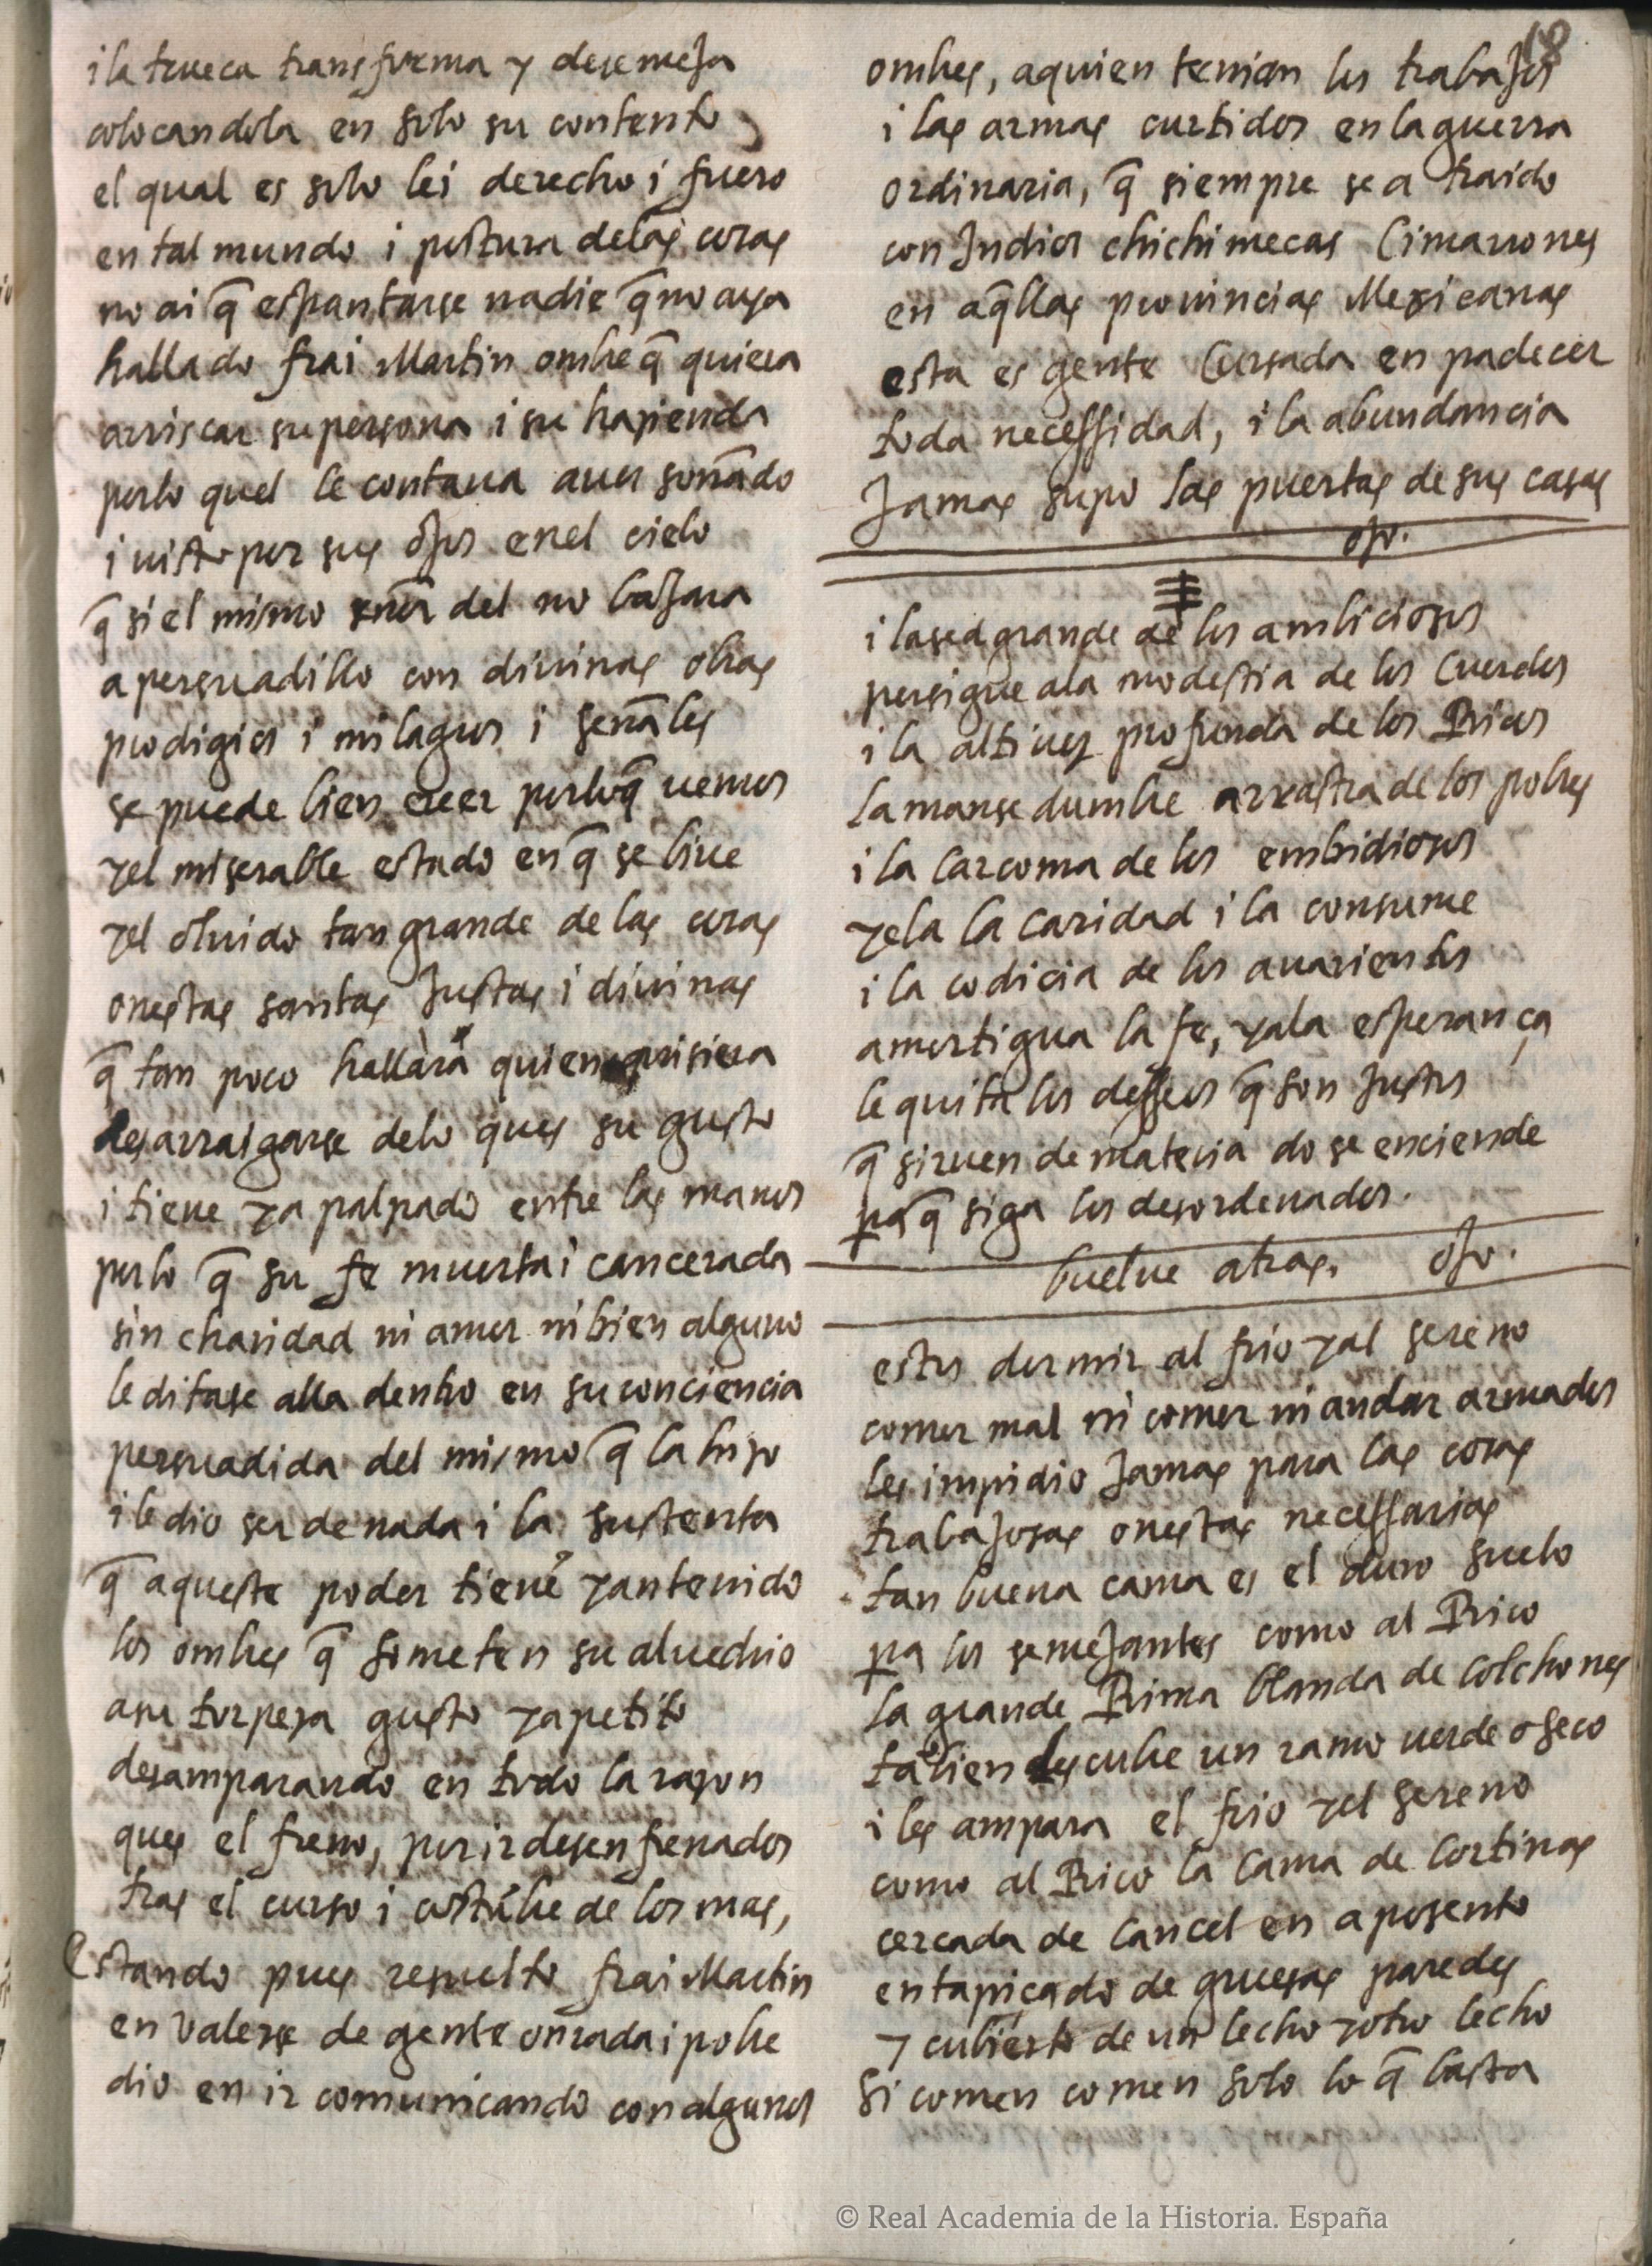 18
i la trueca transforma y desemeja
colocandola en solo su contento
el qual es solo lei derecho i fuero
en tal mundo i postura de las cosas
no ai q̃ espantarse nadie q̃ no aya
hallado frai Martin ombre q̃ quiera
arriscar su persona i su hazienda
por lo quel le contaua auer soñado
i uisto por sus ojos en el cielo
q̃ si el mismo señor del no baxara
a persuadillo con diuinas obras
prodigios i milagros i señales
se puede bien creer por lo q̃ uemos
y el miserable estado en q̃ se biue
y el oluido tan grande de las cosas
onestas santas justas i diuinas
q̃ tan poco hallara quien quisiera
desarraigarse de lo ques su gusto
i tiene ya palpado entre las manos
por lo q̃ su fe muerta i cancerada
sin charidad ni amor ni bien alguno
le ditase alla dentro en su conciencia
persuadida del mismo q̃ la hizo
i le dio ser de nada i la sustenta
q̃ aqueste poder tiene y an tenido
los ombres q̃ someten su aluedrio
a su torpeza gusto y apetito
desamparando en todo la razon
ques el freno, por ir desenfrenados
tras el curso i costũbre de los mas,
Estando pues resuelto frai Martin
en valerse de gente onrada i pobre
dio en ir comunicando con algunos
ombres, a quien tenian los trabajos
i las armas curtidos en la guerra
ordinaria, q̃ siempre se a traido
con Indios chichimecas Cimarrones
en aq̃llas prouincias Mexicanas
esta es gente Cursada en padecer
toda necessidad, i la abundancia
Jamas supo las puertas de sus casas
ojo.
i la sed grande de los ambiciosos
persigue a la modestia de los Cuerdos
i la altiuez profunda de los Ricos
la mansedumbre arrastra de los pobres
i la Carcoma de los embidiosos
yela la Caridad i la consume
i la codicia de los auarientos
amortigua la fe, y a la esperança
le quita los desseos q̃ son justos
q̃ siruen de materia do se enciende
pa q̃ siga los desordenados.
buelue atras. ojo.
estos dormir al frio y al sereno
comer mal ni comer ni andar armados
les impidio Jamas para las cosas
trabajosas onestas necessarias
tan buena cama es el duro suelo
pa los semejantes como al Rico
la grande Rima blanda de Colchones
tãbien les cubre un ramo uerde o seco
i les ampara el frio y el sereno
como al Rico la Cama de Cortinas
cercada de Cancel en aposento
entapiçado de gruesas paredes
y cubierto de un lecho y otro lecho
Si comen comen solo lo q̃ basta
© Real Academia de la Historia. España